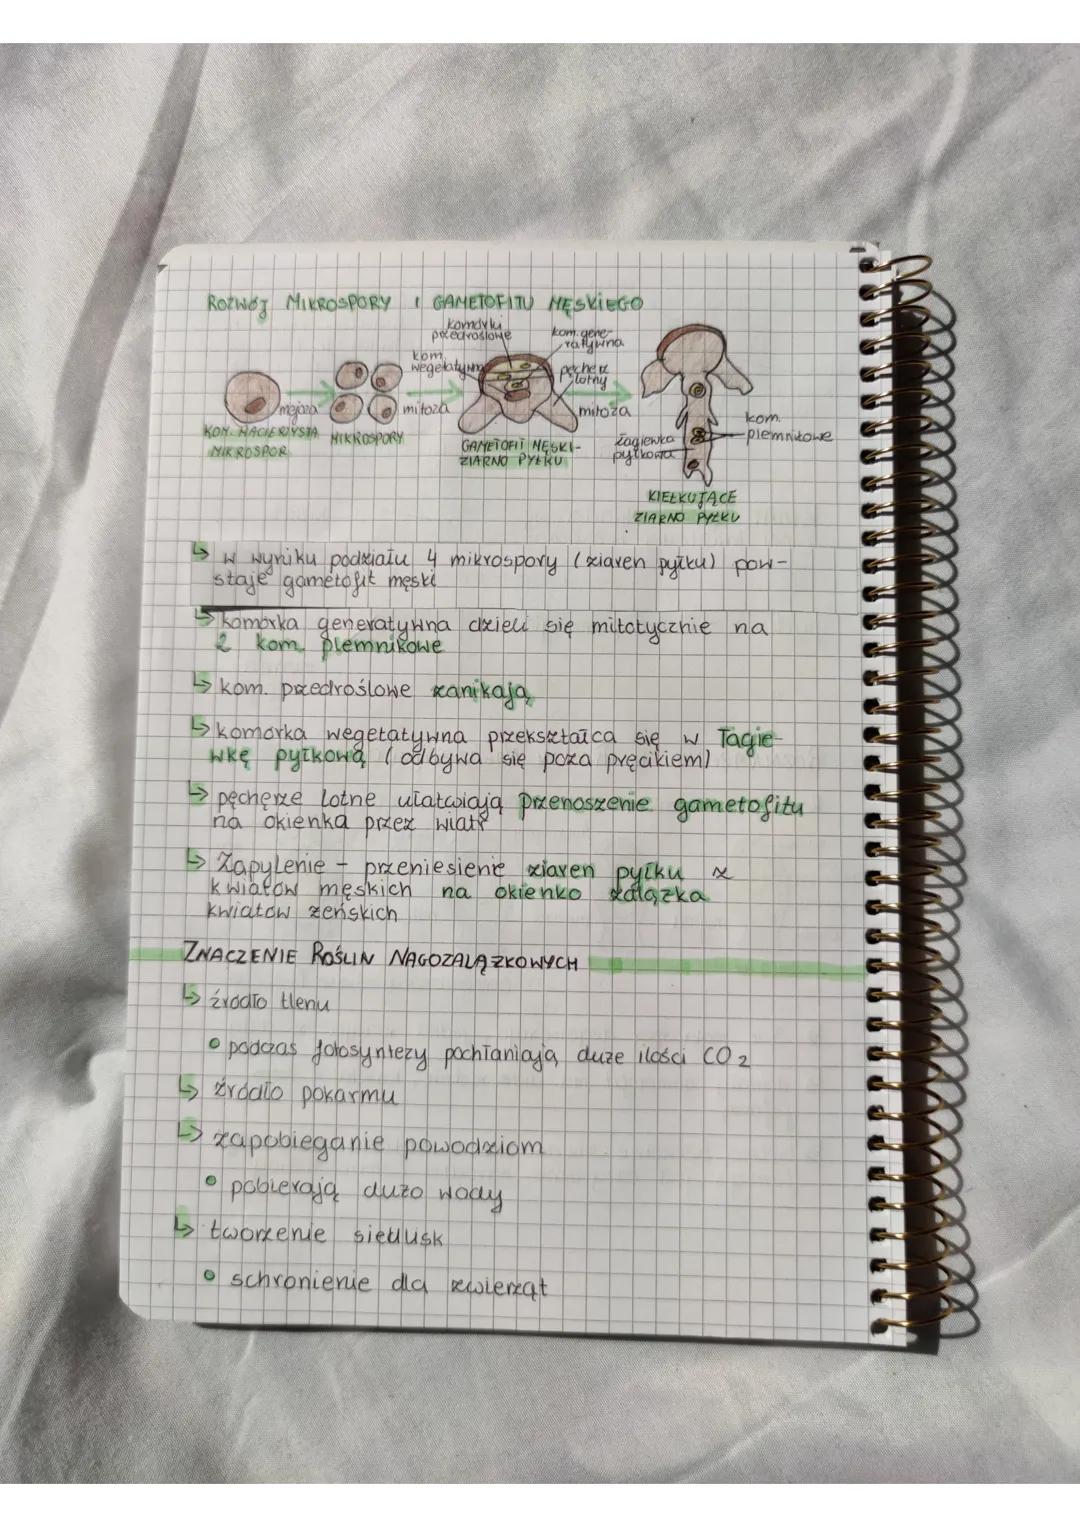 ROZWÓJ MIKROSPORY I GAMETOFITU MĘSKIEGO
komórki
przedroślowe
kom. gene-
ratywna
kom.
wegetatywna
pęcherz
lotny
mejoza
mitoza
mitoza
kom.
plemnikowe
łagiewka
pyłkowa
KOM. MACIERZYSTA
MIKROSPOR
MIKROSPORY
GAMETOFIT MĘSKI-
ZIARNO PYŁKU
KIEŁKUJĄCE
ZIARNO PYŁKU
↳ w wyniku podziału 4 mikrospory (ziaren pyłku) pow-
staje gametofit męski
↳ komórka generatywna dzieli się mitotycznie na
2 kom. plemnikowe
↳ kom. przedroślowe zanikają
↳ komórka wegetatywna przekształca się w łagie-
wkę pyłkową (odbywa się poza pręcikiem)
↳ pęcherze lotne ułatwiają przenoszenie gametofitu
na okienka przez wiatr
↳ Zapylenie - przeniesienie ziaren pyłku z
kwiatów męskich na okienko zalążka
kwiatów żeńskich
ZNACZENIE ROŚLIN NAGOZALĄŻKOWYCH
↳ źródło tlenu
• podczas fotosyntezy pochłaniają duże ilości CO2
↳ źródło pokarmu
↳ zapobieganie powodziom
• pobierają dużo wody
↳ tworzenie siedlisk
• schronienie dla zwierząt